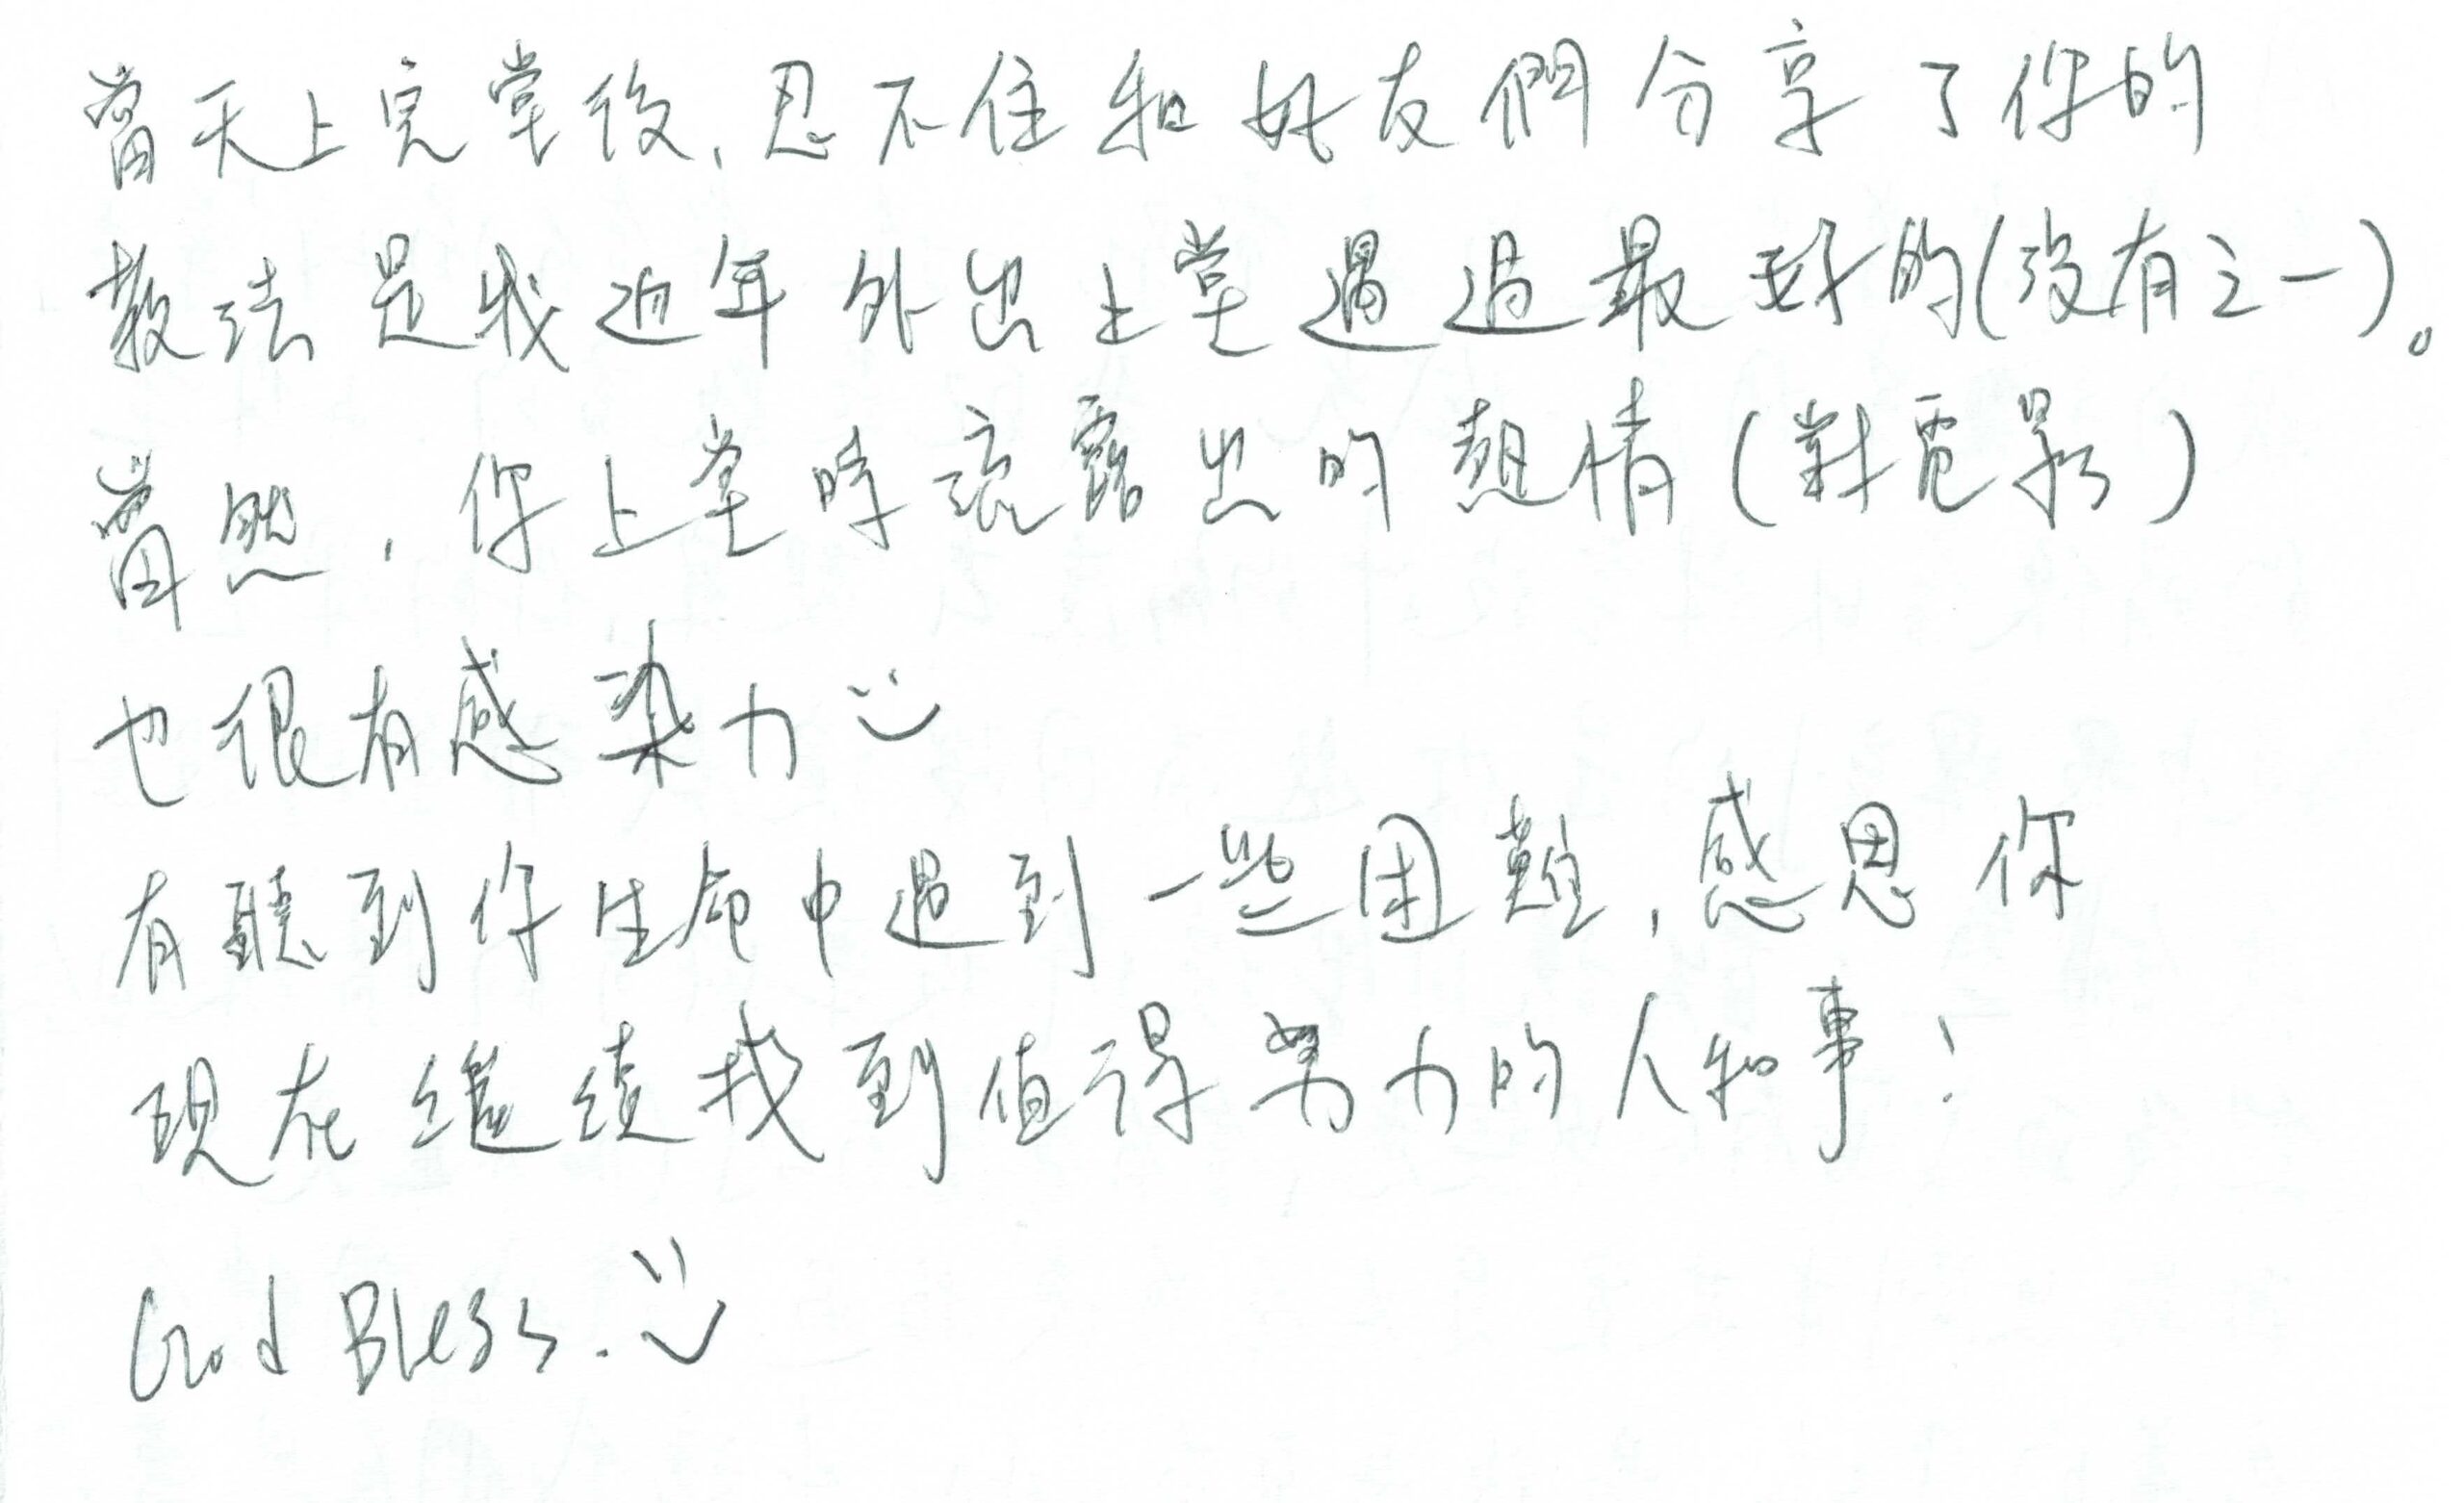 當天上完堂後,忍不住和好友們分享了你的
教法是我近年外出上堂遇過最好的(沒有之一)。
當然,你上堂時流露出的熱情(對電影)
也很有感染力
有聽到你生命中遇到一些困難,感恩你
現在繼續找到值得努力的人和事!
God Bless.